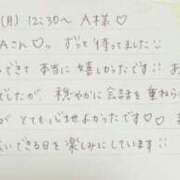 (月) 12:30〜 A様♡
Aさん♡。ずっと待ってました
できて 本当に嬉しかったです!!あ
でしたが、穏やかに会話を重ねら
が とても心地よかったです♡♡
いできる日を楽しみにしています!!